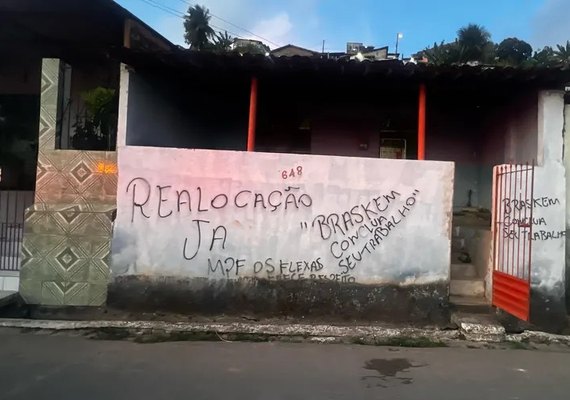 648
REALOCAÇÃO
JA
"BRASKEM
CONCLUA
SEU TRABALHO"
MPF OS FLEXAS
MERECE RESPEITO
BRASKEM
CONCLUA
SEU TRABALHO